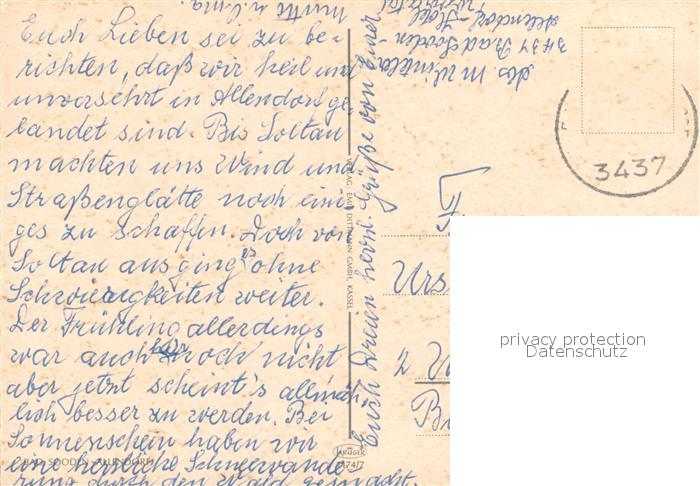 Euch Lieben sei zu be-
richten, daß wir heil und
unversehrt in Allendorf ge-
landet sind. Bis Soltau
machten uns Wind und
Straßenglätte noch eini-
ges zu schaffen. Doch von
Soltau aus ging es ohne
Schwierigkeiten weiter.
Der Frühling allerdings
war auch hier noch nicht
aber jetzt scheint's allmäh-
lich besser zu werden. Bei
Sonnenschein haben wir
eine herrliche Schneewande-
rung durch den Wald gemacht.
BAD SOODEN-ALLENDORF
Euch Dreien herzl. Grüße von Eurer
Mutti u. Oma.
Abs. M. Winkler
3437 Bad Sooden-
Allendorf-
VERLAG EMIL DITTMANN GMBH, KASSEL
KRÜGER
3437
F
Urs
2
B
privacy protection
Datenschutz